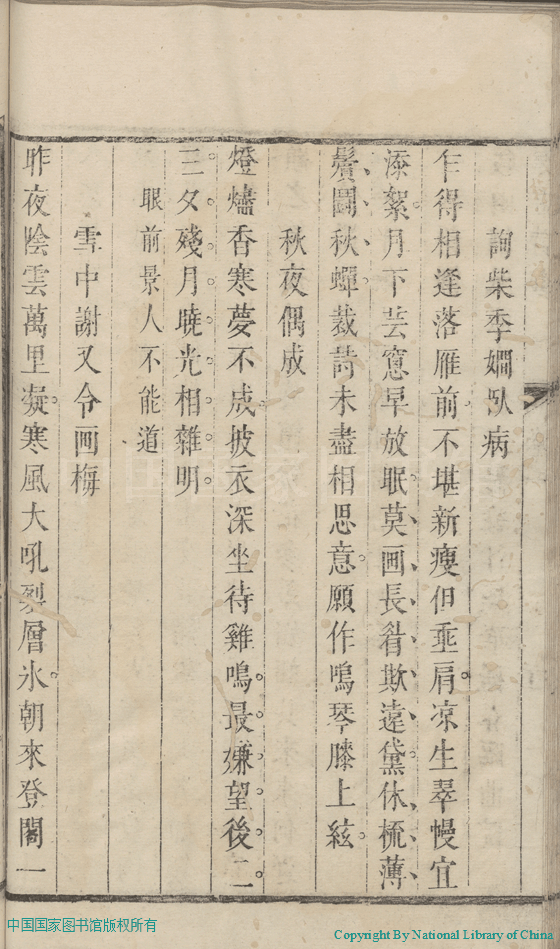 詢柴季嫻臥病
乍得相逢落雁前不堪新瘦但垂肩凉生翠幔宜
添絮月下芸窓早放眠莫画長眉欺遠黛休梳薄
鬢鬪秋蟬裁詩未盡相思意願作鳴琴膝上絃
秋夜偶成
燈燼香寒夢不成披衣深坐待雞鳴最嫌望後二
三夕殘月曉光相雜明
眼前景人不能道
雪中謝又令画梅
昨夜陰雲萬里凝寒風大吼裂層氷朝來登閣一
中国国家图书馆版权所有
Copyright By National Library of China